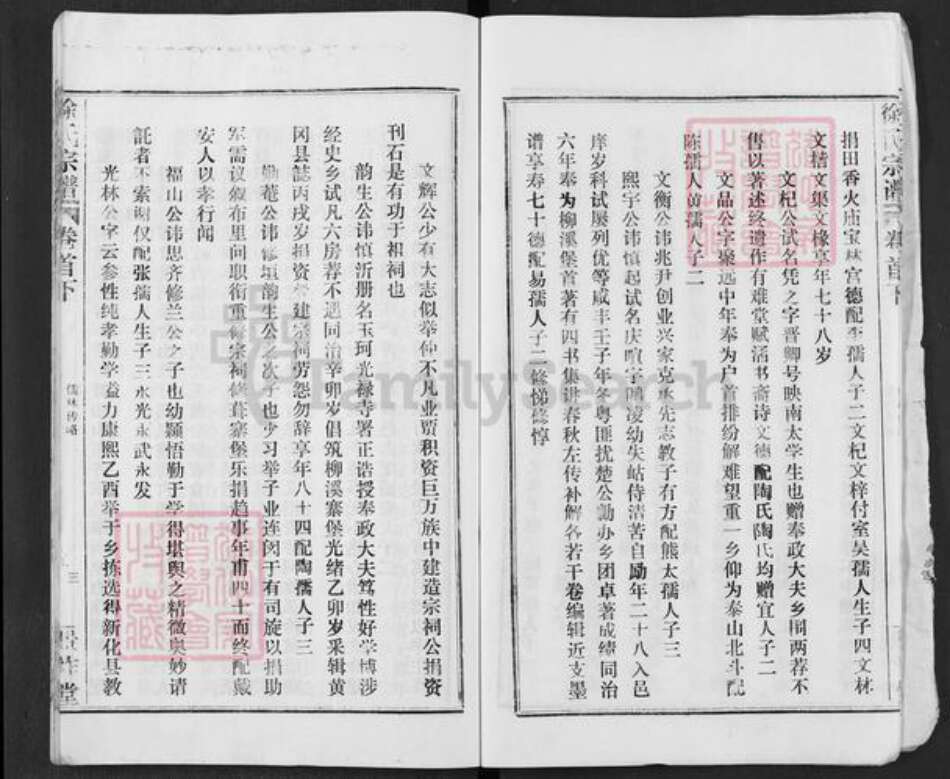 徐氏宗谱 卷首下
捐田香火庙宝林宫德配李孺人子二文杞文梓付室吴孺人生子四文林
文楷文渠文椽享年七十八岁
文杞公试名凭之字晋卿号映南太学生也赠奉政大夫乡闱两荐不
售以著述终遗作有难堂赋活书斋诗文德配陶氏陶氏均赠宜人子二
文品公字聚远中年奉为户首排纷解难望重一乡仰为泰山北斗配
陈孺人黄孺人子二
文衡公讳兆尹创业兴家克承先志教子有方配熊太孺人子三
熙宇公讳慎起试名庆喧字鸣凌幼失岵侍清苦自励年二十八入邑
庠岁科试屡列优等咸丰壬子年冬粤匪扰楚公勷办乡团卓著成绩同治
六年奉为柳溪堡首著有四书集讲春秋左传补解各若干卷编辑近支墨
谱享寿七十德配易孺人子二修悌修惇
文辉公少有大志似举仲不凡业贾积资巨万族中建造宗祠公捐资
刊石是有功于祖祠也
韵生公讳慎沂册名玉珂光禄寺署正诰授奉政大夫笃性好学博涉
经史乡试凡六房荐不遇同治辛卯岁倡筑柳溪寨堡光绪乙卯岁采辑黄
冈县誌丙戌岁捐资建宗祠劳怨勿辞享年八十四配陶孺人子三
勤菴公讳修垣韵生公之次子也少习举子业连闵于有司旋以捐助
军需议叙布里问职衔重修宗祠修葺寨堡乐捐趋事年甫四十而终配戴
安人以孝行闻
福山公讳思齐修兰公之子也幼颖悟勤于学得堪舆之精微奥妙请
託者不索谢仪配张孺人生子三永光永武永发
光林公字云参性纯孝勤学益力康熙乙酉举于乡拣选得新化县教
徐氏宗谱 卷首下
儒林传略
三
堂
FamilySearch